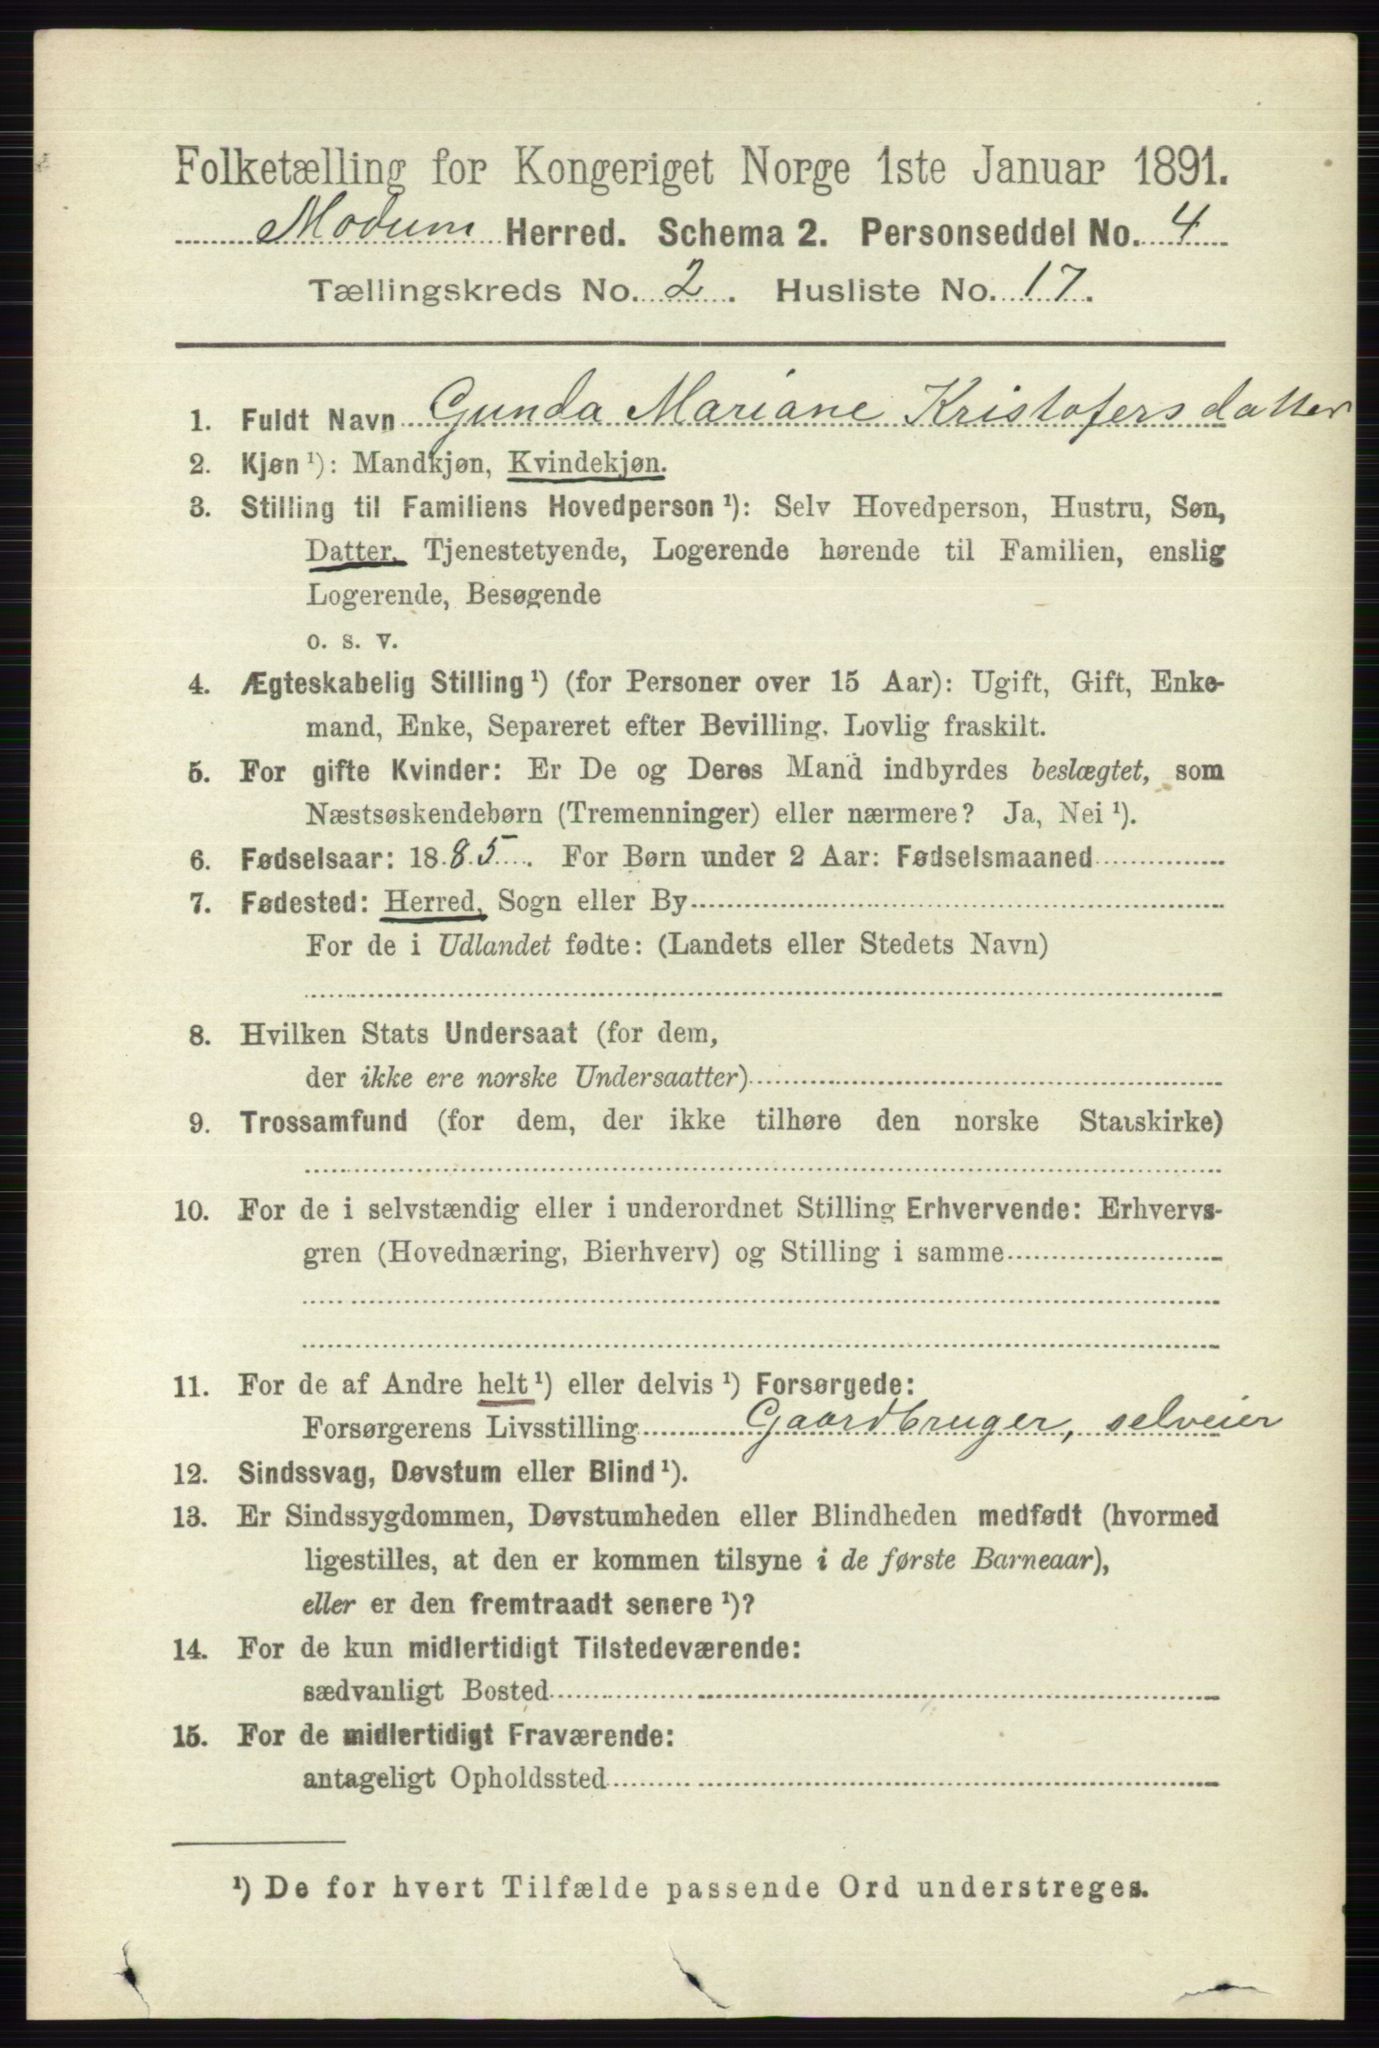 Folketælling for Kongeriget Norge 1ste Januar 1891.
Modum Herred. Schema 2. Personseddel No. 4
Tællingskreds No. 2. Husliste No. 17.
1. Fuldt Navn Gunda Mariane Kristofersdatter
2. Kjøn ¹): Mandkjøn, Kvindekjøn.
3. Stilling til Familiens Hovedperson ¹): Selv Hovedperson, Hustru, Søn,
Datter, Tjenestetyende, Logerende hørende til Familien, enslig
Logerende, Besøgende
o. s. v.
4. Ægteskabelig Stilling ¹) (for Personer over 15 Aar): Ugift, Gift, Enke-
mand, Enke, Separeret efter Bevilling. Lovlig fraskilt.
5. For gifte Kvinder: Er De og Deres Mand indbyrdes beslægtet, som
Næstsøskendebørn (Tremenninger) eller nærmere? Ja, Nei ¹).
6. Fødselsaar: 1885. For Børn under 2 Aar: Fødselsmaaned
7. Fødested: Herred, Sogn eller By
For de i Udlandet fødte: (Landets eller Stedets Navn)
8. Hvilken Stats Undersaat (for dem,
der ikke ere norske Undersaatter)
9. Trossamfund (for dem, der ikke tilhøre den norske Statskirke)
10. For de i selvstændig eller i underordnet Stilling Erhvervende: Erhvervs-
gren (Hovednæring, Bierhverv) og Stilling i samme
11. For de af Andre helt ¹) eller delvis ¹) Forsørgede:
Forsørgerens Livsstilling Gaardbruger, selveier
12. Sindssvag, Døvstum eller Blind ¹).
13. Er Sindssygdommen, Døvstumheden eller Blindheden medfødt (hvormed
ligestilles, at den er kommen tilsyne i de første Barneaar),
eller er den fremtraadt senere ¹)?
14. For de kun midlertidigt Tilstedeværende:
sædvanligt Bosted
15. For de midlertidigt Fraværende:
antageligt Opholdssted
¹) De for hvert Tilfælde passende Ord understreges.